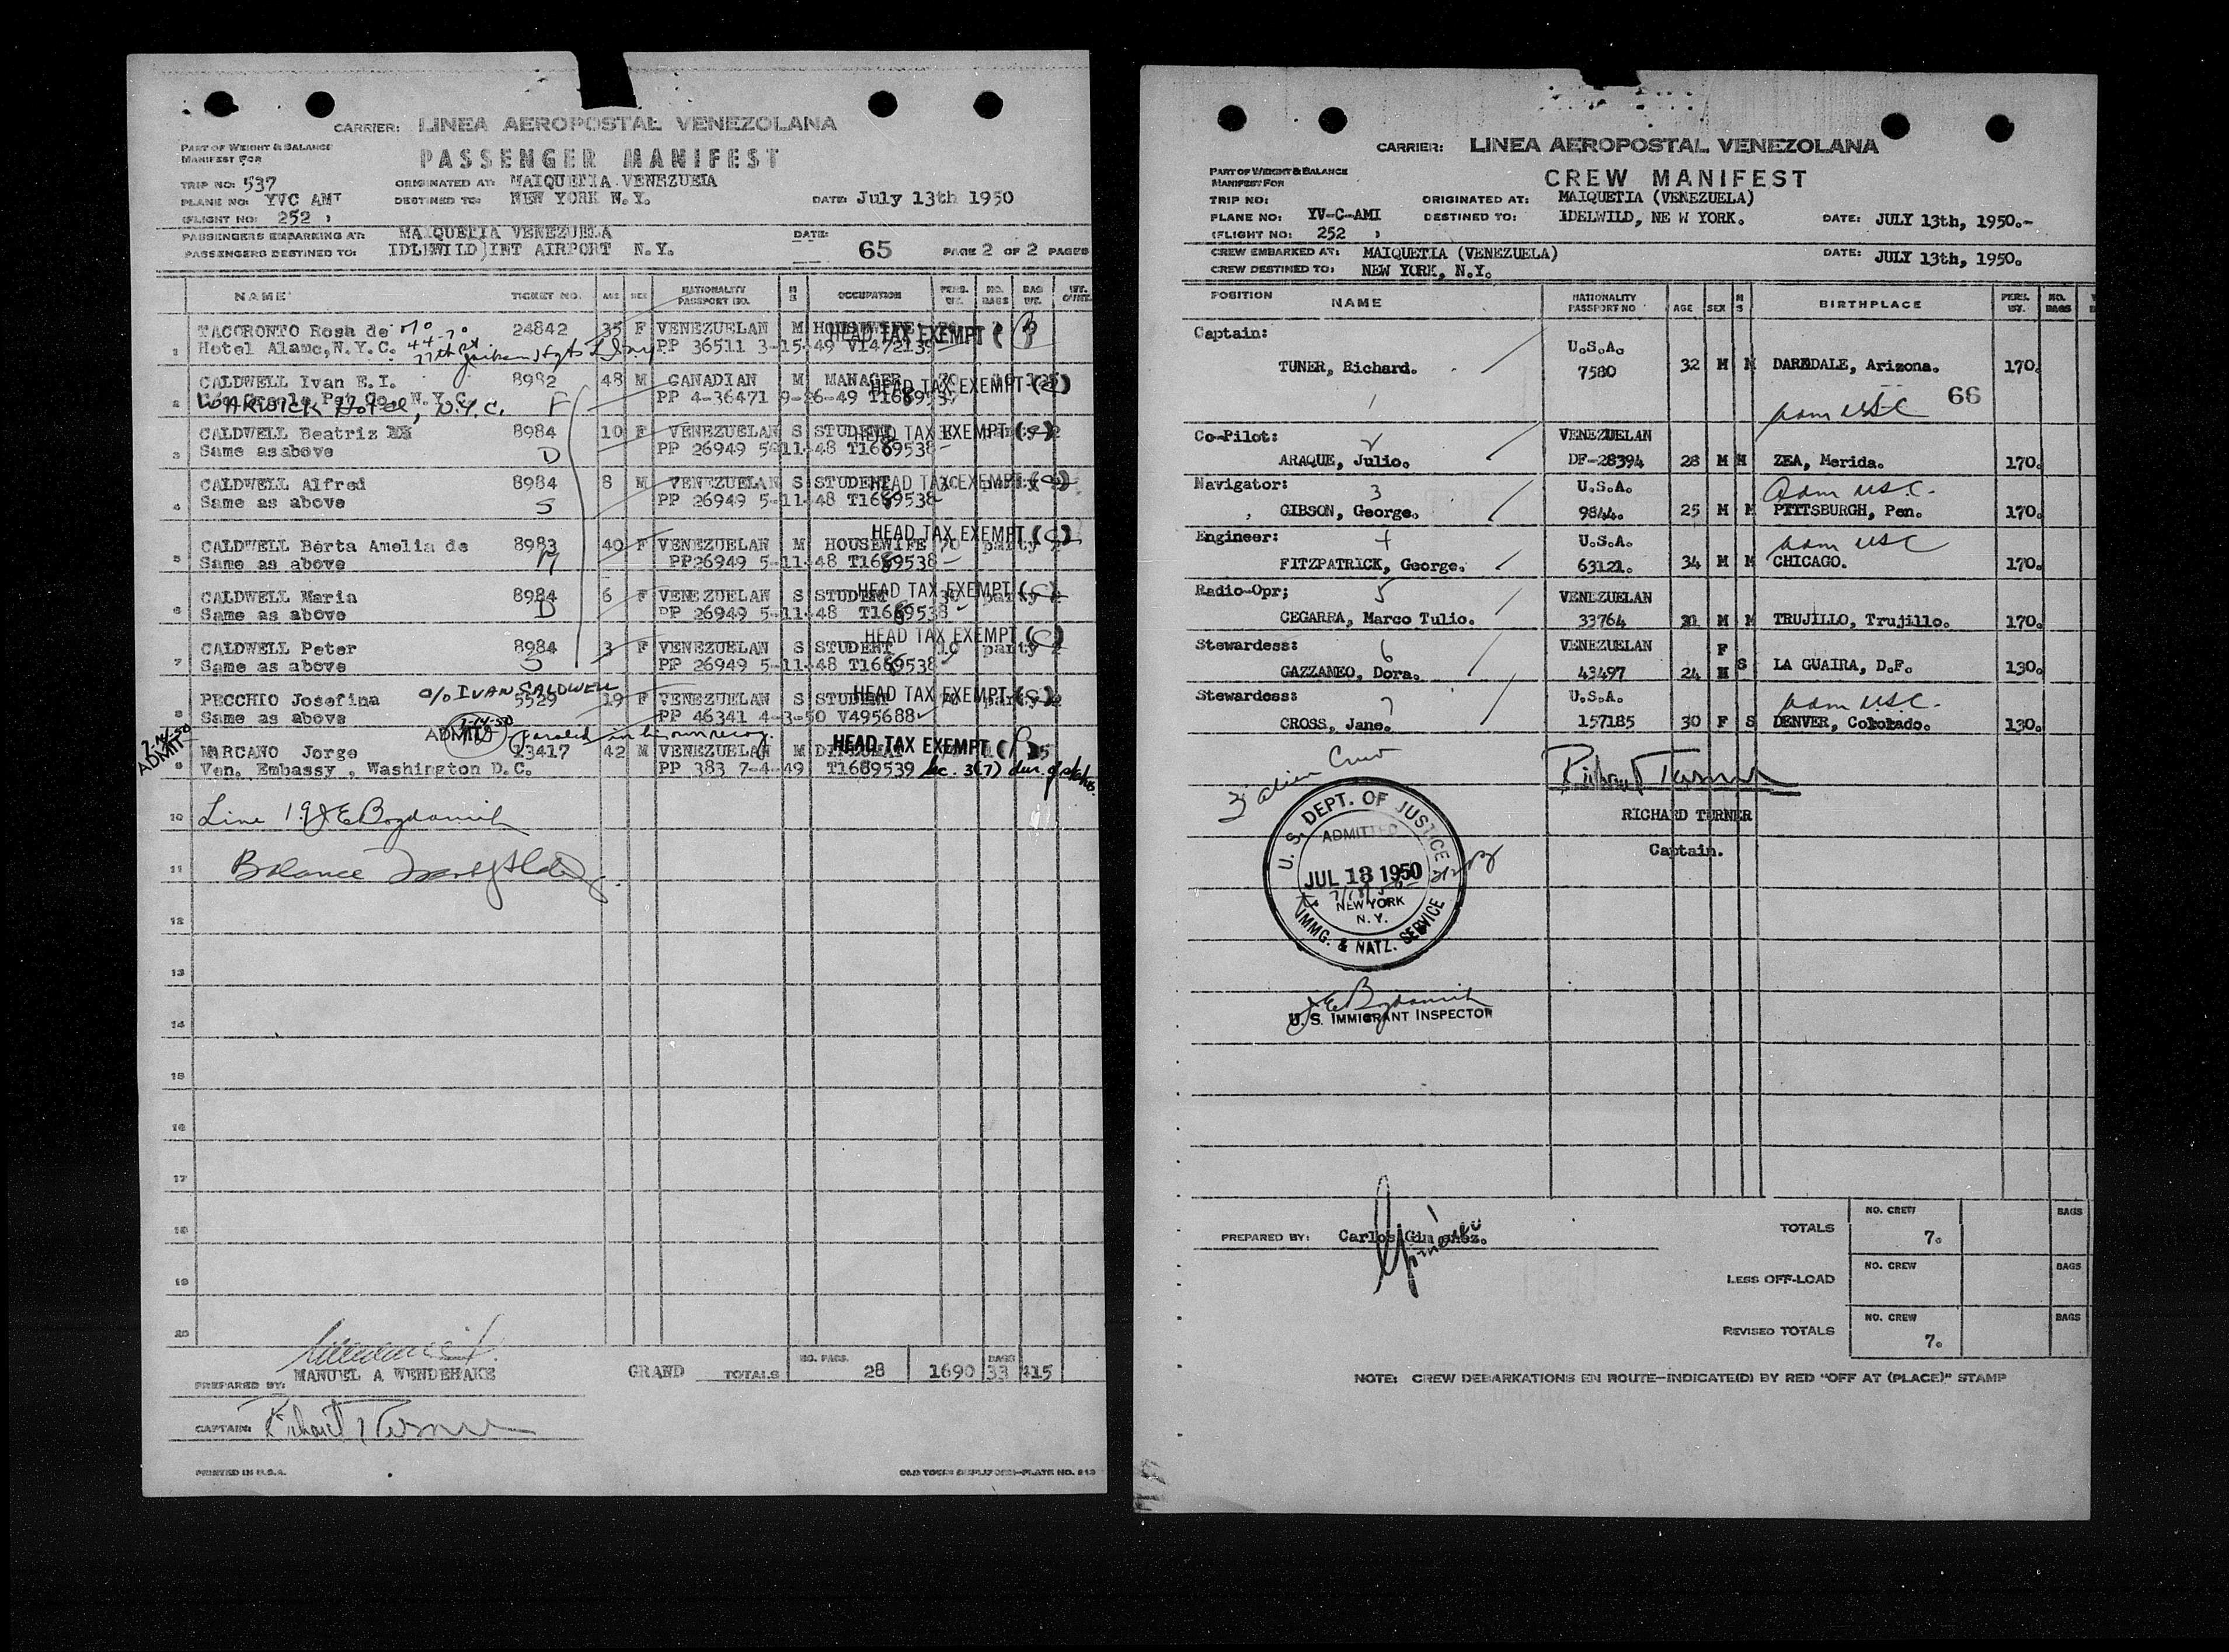 CARRIER: LINEA AEROPOSTAL VENEZOLANA
PART OF WEIGHT & BALANCE
MANIFEST FOR
PASSENGER MANIFEST
TRIP NO: 537
ORIGINATED AT: MAIQUETIA VENEZUELA
PLANE NO: YVC AMI
DESTINED TO: NEW YORK N.Y.
DATE: July 13th 1950
(FLIGHT NO: 252 )
PASSENGERS EMBARKING AT: MAIQUETIA VENEZUELA
DATE:
PASSENGERS DESTINED TO: IDLEWILD INT AIRPORT N.Y.
65
PAGE 2 OF 2 PAGES
NAME TICKET NO. AGE SEX NATIONALITY PASSPORT NO. M S OCCUPATION PERS. WT. NO. BAGS BAG WT.
TACORONTO Rosa de 24842 35 F VENEZUELAN M HOUSEWIFE HEAD TAX EXEMPT
1 Hotel Alamo, N.Y.C. PP 36511 3-15-49
CALDWELL Ivan E.I. 8982 48 M CANADIAN M MANAGER HEAD TAX EXEMPT
2 WARWICK HOTEL, N.Y.C. F PP 4-36471 9-26-49 T1689537
CALDWELL Beatriz 8984 10 F VENEZUELAN S STUDENT HEAD TAX EXEMPT
3 Same as above D PP 26949 5-11-48 T1689538
CALDWELL Alfred 8984 8 M VENEZUELAN S STUDENT HEAD TAX EXEMPT
4 Same as above S PP 26949 5-11-48 T1689538
HEAD TAX EXEMPT
CALDWELL Berta Amelia de 8983 40 F VENEZUELAN M HOUSEWIFE 70 party
5 Same as above M PP26949 5-11-48 T1689538
CALDWELL Maria 8984 6 F VENEZUELAN S STUDENT HEAD TAX EXEMPT
6 Same as above D PP 26949 5-11-48 T1689538
HEAD TAX EXEMPT
CALDWELL Peter 8984 3 F VENEZUELAN S STUDENT 10 party
7 Same as above S PP 26949 5-11-48 T1689538
PECCHIO Josefina c/o IVAN CALDWELL 5529 19 F VENEZUELAN S STUDENT HEAD TAX EXEMPT
8 Same as above PP 46341 4-3-50 V495688
7-14-50 ADMITTED Paroled in his own recog.
7-14-50 ADMIT
MARCANO Jorge 13417 42 M VENEZUELAN M DIPLOMAT HEAD TAX EXEMPT
9 Ven. Embassy , Washington D.C. PP 383 7-4-49 T1689539 Sec. 3(7) dur. of status.
10 Line 1,9 J E Bogdanich
11 Balance
12
13
14
15
16
17
18
19
20
PREPARED BY: MANUEL A WENDEHAKE
GRAND TOTALS NO. PASS. 28 1690 BAGS 33 415
CAPTAIN: Richard Turner
PRINTED IN U.S.A.
CARRIER: LINEA AEROPOSTAL VENEZOLANA
PART OF WEIGHT & BALANCE
MANIFEST FOR
CREW MANIFEST
TRIP NO:
ORIGINATED AT: MAIQUETIA (VENEZUELA)
PLANE NO: YV-C-AMI
DESTINED TO: IDELWILD, NE W YORK.
DATE: JULY 13th, 1950.-
(FLIGHT NO: 252 )
CREW EMBARKED AT: MAIQUETIA (VENEZUELA)
DATE: JULY 13th, 1950.
CREW DESTINED TO: NEW YORK, N.Y.
POSITION NAME NATIONALITY PASSPORT NO AGE SEX M S BIRTHPLACE PERS. WT. NO. BAGS
Captain: U.S.A.
TUNER, Richard. 7580 32 M M DAREDALE, Arizona. 170.
1 Adm USC 66
Co-Pilot: 2 VENEZUELAN
ARAQUE, Julio. DF-28394 28 M M ZEA, Merida. 170.
Navigator: 3 U.S.A. Adm USC.
GIBSON, George. 9844. 25 M M PITTSBURGH, Pen. 170.
Engineer: 4 U.S.A. Adm USC
FITZPATRICK, George. 63121. 34 M M CHICAGO. 170.
Radio-Opr; 5 VENEZUELAN
CEGARRA, Marco Tulio. 33764 M M TRUJILLO, Trujillo. 170.
Stewardess: 6 VENEZUELAN F
GAZZANEO, Dora. 43497 24 M S LA GUAIRA, D.F. 130.
Stewardess: 7 U.S.A. Adm USC.
CROSS, Jane. 157185 30 F S DENVER, Colorado. 130.
3 alien Crew
Richard Turner
RICHARD TURNER
Captain.
U. S. DEPT. OF JUSTICE
ADMITTED
JUL 13 1950
NEW YORK
N. Y.
IMMG. & NATZ. SERVICE
J E Bogdanich
U. S. IMMIGRANT INSPECTOR
PREPARED BY: Carlos Gimenez.
TOTALS NO. CREW 7. BAGS
LESS OFF-LOAD NO. CREW BAGS
REVISED TOTALS NO. CREW 7. BAGS
NOTE: CREW DEBARKATIONS EN ROUTE—INDICATE(D) BY RED "OFF AT (PLACE)" STAMP